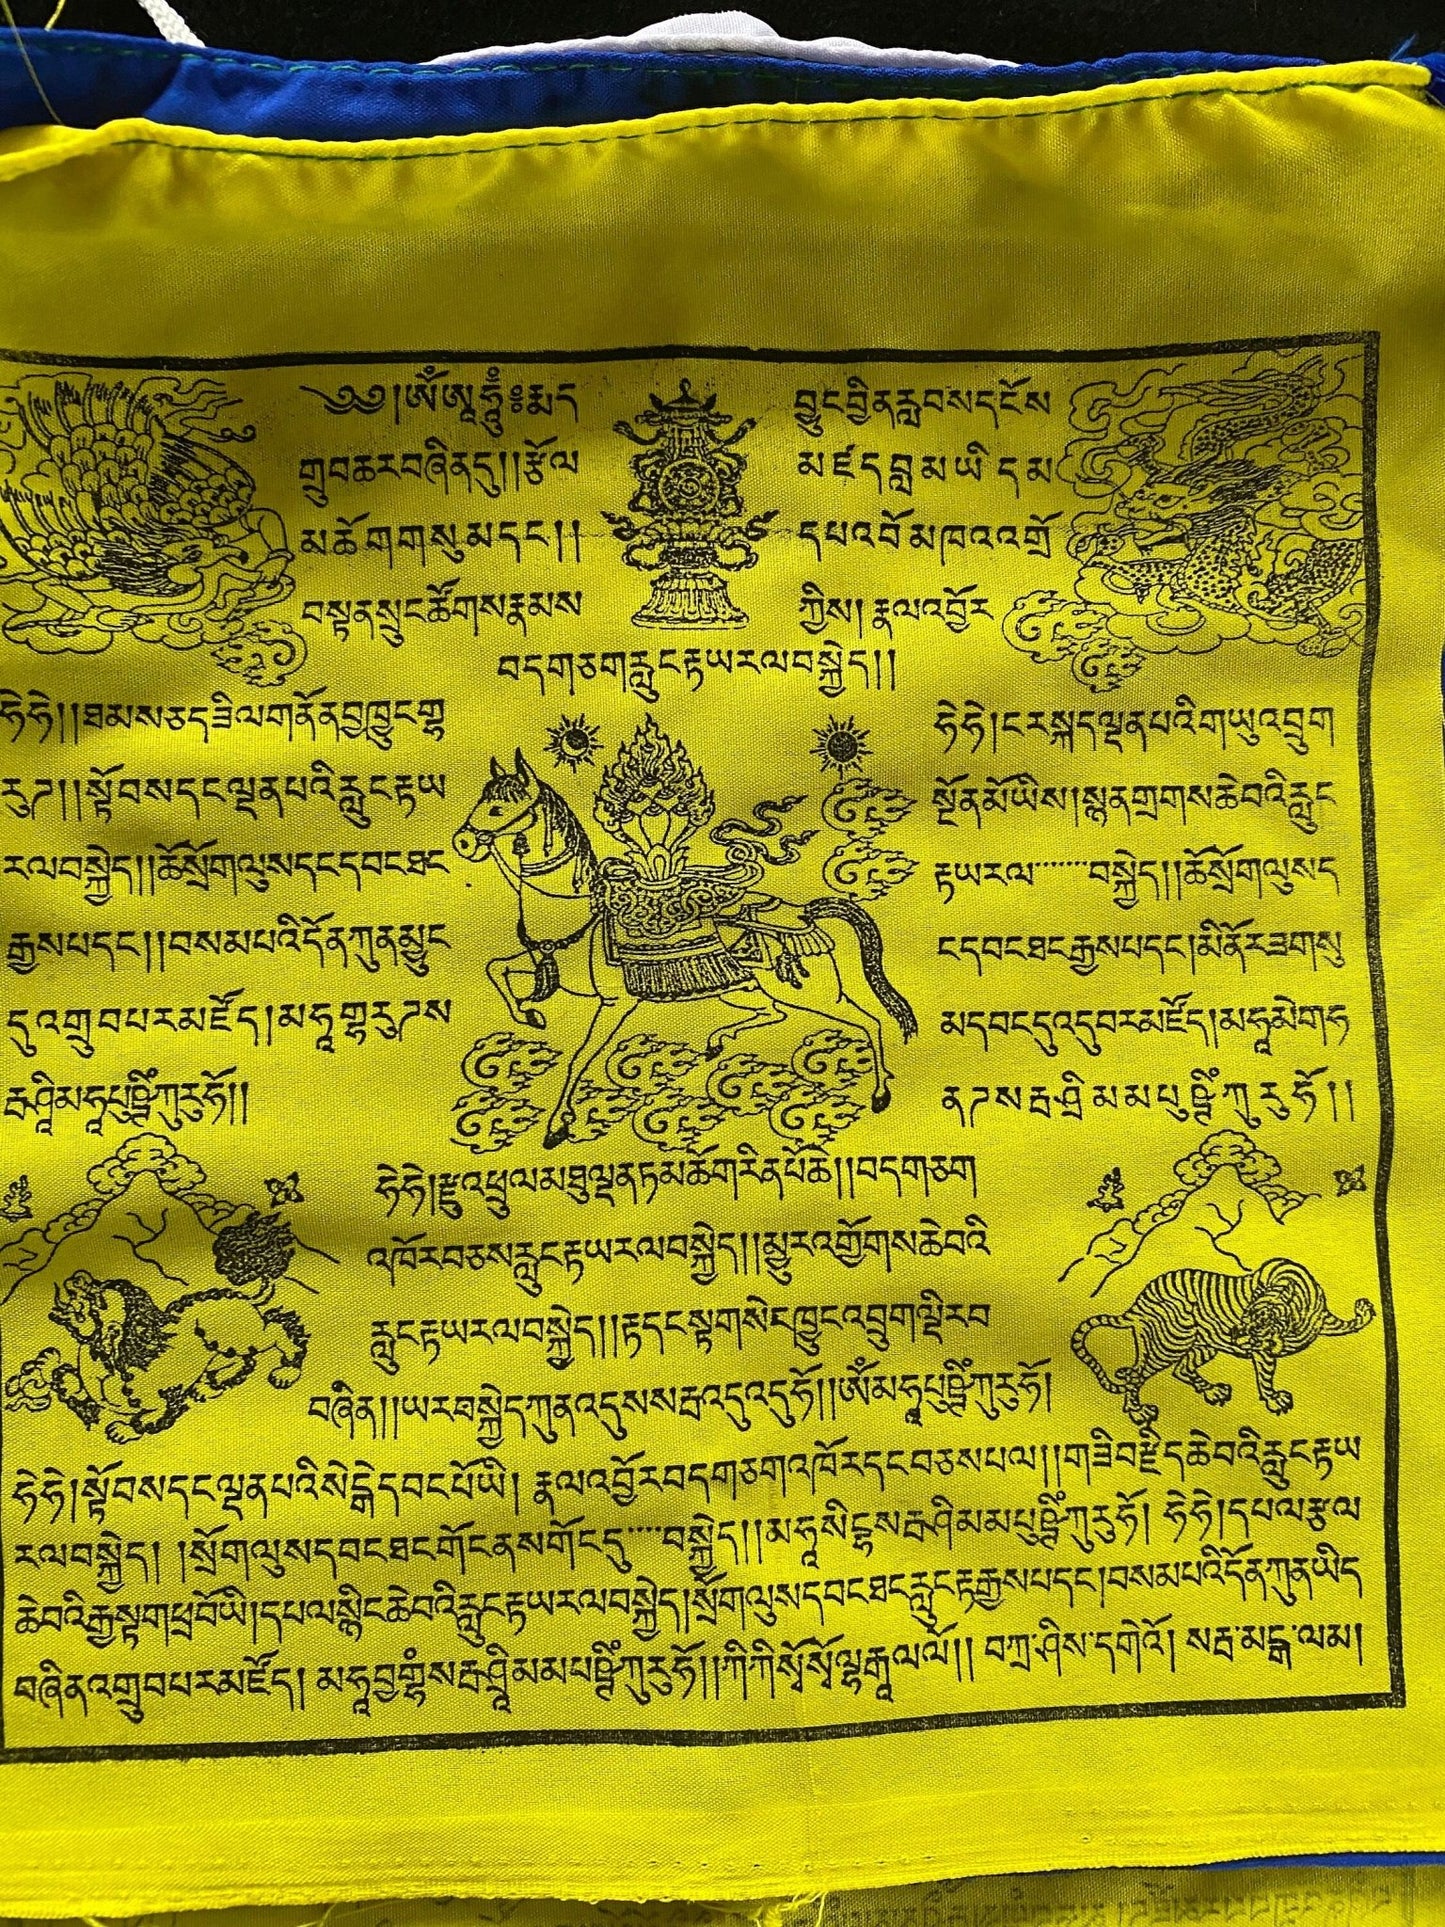 ༄༅། །ཨོཾ་ཨཱཿཧཱུྃ༔ རྨད
བྱུང་བྱིན་རླབས་དངོས
གྲུབ་ཆར་བཞིན་དུ།། རྩོལ
མཛད་བླ་མ་ཡི་དམ
མཆོག་གསུམ་དང་།།
དཔའ་བོ་མཁའ་འགྲོ
བསྟན་སྲུང་ཚོགས་རྣམས
ཀྱིས། རྣལ་འབྱོར
བདག་ཅག་རླུང་རྟ་ཡར་ལ་བསྐྱེད།།
ཧེ་ཧེ།། ཐམས་ཅད་ཟིལ་གནོན་བྱ་ཁྱུང་གྷ
རུ་ཌ།། སྟོབས་དང་ལྡན་པའི་རླུང་རྟ་ཡ
ར་ལ་བསྐྱེད།། ཚེ་སྲོག་ལུས་དང་དབང་ཐང
རྒྱས་པ་དང་།། བསམ་པའི་དོན་ཀུན་མྱུང
དུ་འགྲུབ་པར་མཛོད། མ་ཧཱ་གྷ་རུ་ཌ་ས
རྦ་ཤྲཱི་མ་ཧཱ་པུཥྚིཾ་ཀུ་རུ་ཧོ།།
ཧེ་ཧེ། ང་ར་སྐད་ལྡན་པའི་གཡུ་འབྲུག
སྔོན་མོ་ཡིས། སྙན་གྲགས་ཆེ་བའི་རླུང
རྟ་ཡར་ལ་་་་་་་བསྐྱེད།། ཚེ་སྲོག་ལུས་ད
ང་དབང་ཐང་རྒྱས་པ་དང་། མི་ནོར་ཟག་སུ
མ་དབང་དུ་འདུ་བར་མཛོད། མ་ཧཱ་མེ་ག་ཧ
ན་ཌ་ས་རྦ་ཤྲི་མ་མ་པུཥྚིཾ་ཀུ་རུ་ཧོ།།
ཧེ་ཧེ། རྫུ་འཕྲུལ་མཐུ་ལྡན་ཏ་མཆོག་རིན་པོ་ཆེ།། བདག་ཅག
འཁོར་བཅས་རླུང་རྟ་ཡར་ལ་བསྐྱེད།། མྱུར་འགྱོགས་ཆེ་བའི
རླུང་རྟ་ཡར་ལ་བསྐྱེད།། རྟ་དང་སྟག་སེང་ཁྱུང་འབྲུག་ལྡིར་བ
བཞིན།། ཡར་བསྐྱེད་ཀུན་འདུས་སརྦ་འདུ་འདུ་ཧོ།། ཨོཾ་མ་ཧཱ་པུཥྚིཾ་ཀུ་རུ་ཧོ།
ཧེ་ཧེ། སྟོབས་དང་ལྡན་པའི་སེངྒེ་དབང་པོ་ཡི། རྣལ་འབྱོར་བདག་ཅག་འཁོར་དང་བཅས་པ་ལ།། གཟི་བརྗིད་ཆེ་བའི་རླུང་རྟ་ཡ
ར་ལ་བསྐྱེད། །སྲོག་ལུས་དབང་ཐང་གོང་ནས་གོང་དུ་་་་བསྐྱེད།། མ་ཧཱ་སིངྷ་སརྦ་ཤི་མ་མ་པུཥྚིཾ་ཀུ་རུ་ཧོ། ཧེ་ཧེ། དཔལ་རྩལ
ཆེ་བའི་རྒྱ་སྟག་ཕྲ་བོ་ཡི། དཔལ་སྙིང་ཆེ་བའི་རླུང་རྟ་ཡར་ལ་བསྐྱེད། སྲོག་ལུས་དབང་ཐང་རླུང་རྟ་རྒྱས་པ་དང་། བསམ་པའི་དོན་ཀུན་ཡིད
བཞིན་འགྲུབ་པར་མཛོད། མ་ཧཱ་བྱ་གྷཾ་སརྦ་ཤྲཱི་མ་མ་པཥྚིཾ་ཀུ་རུ་ཧོ།། ཀི་ཀི་སྭོ་སྭོ་ལྷ་རྒྱལ་ལོ།། བཀྲ་ཤིས་དགེའོ། སརྦ་མངྒ་ལམ།